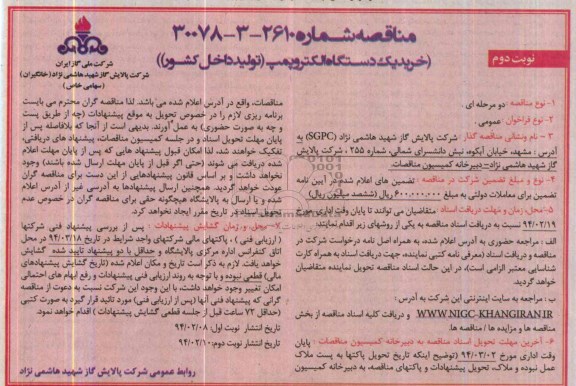 مناقصه شماره ۲۶۱۰-۳-۳۰۰۷۸
(خرید یک دستگاه الکتروپمپ (تولید داخل کشور))
شرکت ملی گاز ایران
شرکت پالایش گاز شهید هاشمی نژاد (خانگیران)
(سهامی خاص)
نوبت دوم
۱- نوع مناقصه : دو مرحله ای .
۲- نوع فراخوان : عمومی .
۳- نام ونشانی مناقصه گذار : شرکت پالایش گاز شهید هاشمی نژاد (SGPC) به
آدرس : مشهد، خیابان آبکوه، نبش دانشسرای شمالی، شماره ۲۵۵ ، شرکت پالایش
گاز شهید هاشمی نژاد - دبیرخانه کمیسیون مناقصات.
۴- نوع و مبلغ تضمین شرکت در مناقصه : تضمین های اعلام شده در آیین نامه
تضمین برای معاملات دولتی به مبلغ ۶۰۰,۰۰۰,۰۰۰ ریال (ششصد میلیون ریال)
۵- محل، زمان و مهلت دریافت اسناد : متقاضیان می توانند تا پایان وقت اداری مورخ
۹۴/۰۲/۱۹ نسبت به دریافت اسناد مناقصه به یکی از روشهای زیر اقدام نمایند:
الف : مراجعه حضوری به آدرس اعلام شده، به همراه اصل نامه درخواست شرکت در
مناقصه و دریافت اسناد (معرفی نامه کتبی نماینده، جهت دریافت اسناد به همراه کارت
شناسایی معتبر الزامی است)، در این حالت اسناد مناقصه تحویل نماینده متقاضیان
خواهد گردید.
ب : مراجعه به سایت اینترنتی این شرکت به آدرس :
WWW.NIGC-KHANGIRAN.IR و دریافت کلیه اسناد مناقصه از بخش
مناقصه ها و مزایده ها / مناقصه ها.
۶- آخرین مهلت تحویل اسناد مناقصه به دبیرخانه کمیسیون مناقصات : پایان
وقت اداری مورخ ۹۴/۰۳/۰۲ (توضیح اینکه تاریخ تحویل پاکتها به پست ملاک
عمل نبوده و ملاک، تحویل پیشنهادات و پاکتهای مناقصه، به دبیرخانه کمیسیون
مناقصات، واقع در آدرس اعلام شده می باشد. لذا مناقصه گران محترم می بایست
برنامه ریزی لازم را در خصوص تحویل به موقع پیشنهادات (چه از طریق پست
و چه به صورت حضوری) به عمل آورند. بدیهی است از آنجا که بلافاصله پس از
پایان مهلت تحویل اسناد و در جلسه کمیسیون مناقصات، پیشنهاد های دریافتی،
تفکیک خواهند شد، لذا امکان قبول پیشنهاد هایی که پس از پایان مهلت اعلام
شده دریافت می شوند (حتی اگر قبل از پایان مهلت ارسال شده باشند) وجود
نخواهد داشت و بر اساس قانون پیشنهادهایی از این دست برای مناقصه گران
عودت خواهد گردید. همچنین ارسال پیشنهادها به آدرسی غیر از آدرس اعلام
شده و یا ارسال به پالایشگاه هیچگونه حقی برای مناقصه گران در خصوص عدم
تحویل اسناد در تاریخ مقرر ایجاد نخواهد کرد.
۷- محل و زمان گشایش پیشنهادات : پس از بررسی پیشنهاد فنی شرکتها
( ارزیابی فنی ) ، پاکتهای مالی شرکتهای واجد شرایط در تاریخ ۹۴/۰۳/۱۸ در محل
اتاق کنفرانس اداره مرکزی پالایشگاه و حداقل با دو پیشنهاد تایید شده گشایش
خواهد یافت. لازم به ذکر است تاریخ و مکان اعلام شده (تاریخ گشایش پیشنهادهای
مالی) قطعی نبوده و با توجه به روند ارزیابی فنی پیشنهادات و رفع ابهام های احتمالی
امکان تغییر وجود خواهد داشت، با این وجود این شرکت نسبت به دعوت از مناقصه
گرانی که پیشنهاد فنی آنها (پس از ارزیابی فنی) مورد تائید قرار گیرد به صورت کتبی
(حداقل ۷۲ ساعت قبل از جلسه قطعی گشایش پیشنهادات ) اقدام خواهد نمود.
تاریخ انتشار نوبت اول: ۹۴/۰۲/۰۸
تاریخ انتشار نوبت دوم: ۹۴/۰۲/۱۰
روابط عمومی شرکت پالایش گاز شهید هاشمی نژاد